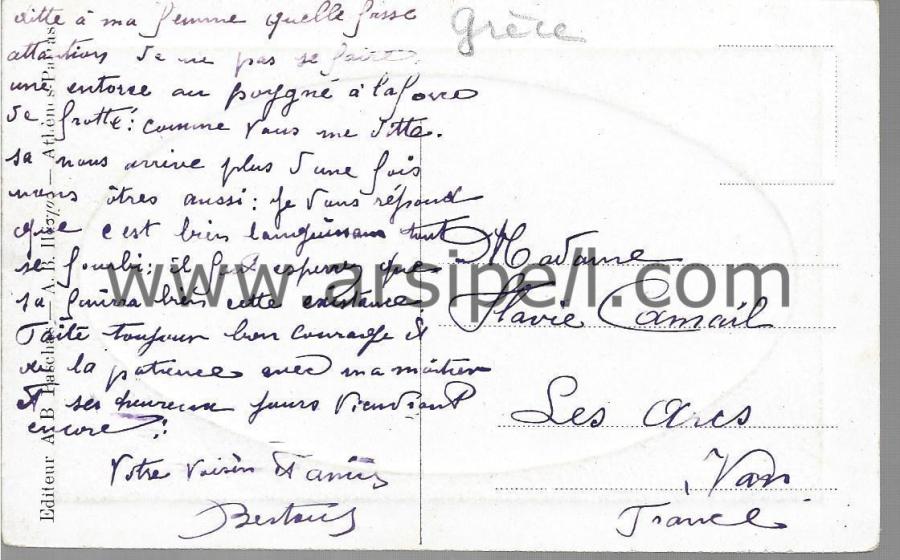 ditte à ma femme quelle fasse
attantion de ne pas se faire
une entorse au poygné à la force
de frotté: comme vous me ditte.
sa nous arrive plus d'une fois
nous ôtres aussi: je vous répond
que c'est bien languissan tout
se fourbi: il faut esperer que
sa finira bien cette existance
Faite toujour bon courage et
de la patience avec ma
et ses heureux jours viendront
encore:
Votre voisin et amis
Grèce
Madame
Flavie Camail
Les Arcs
Var
France
Editeur A. B. Pascha
www.arsipel1.com